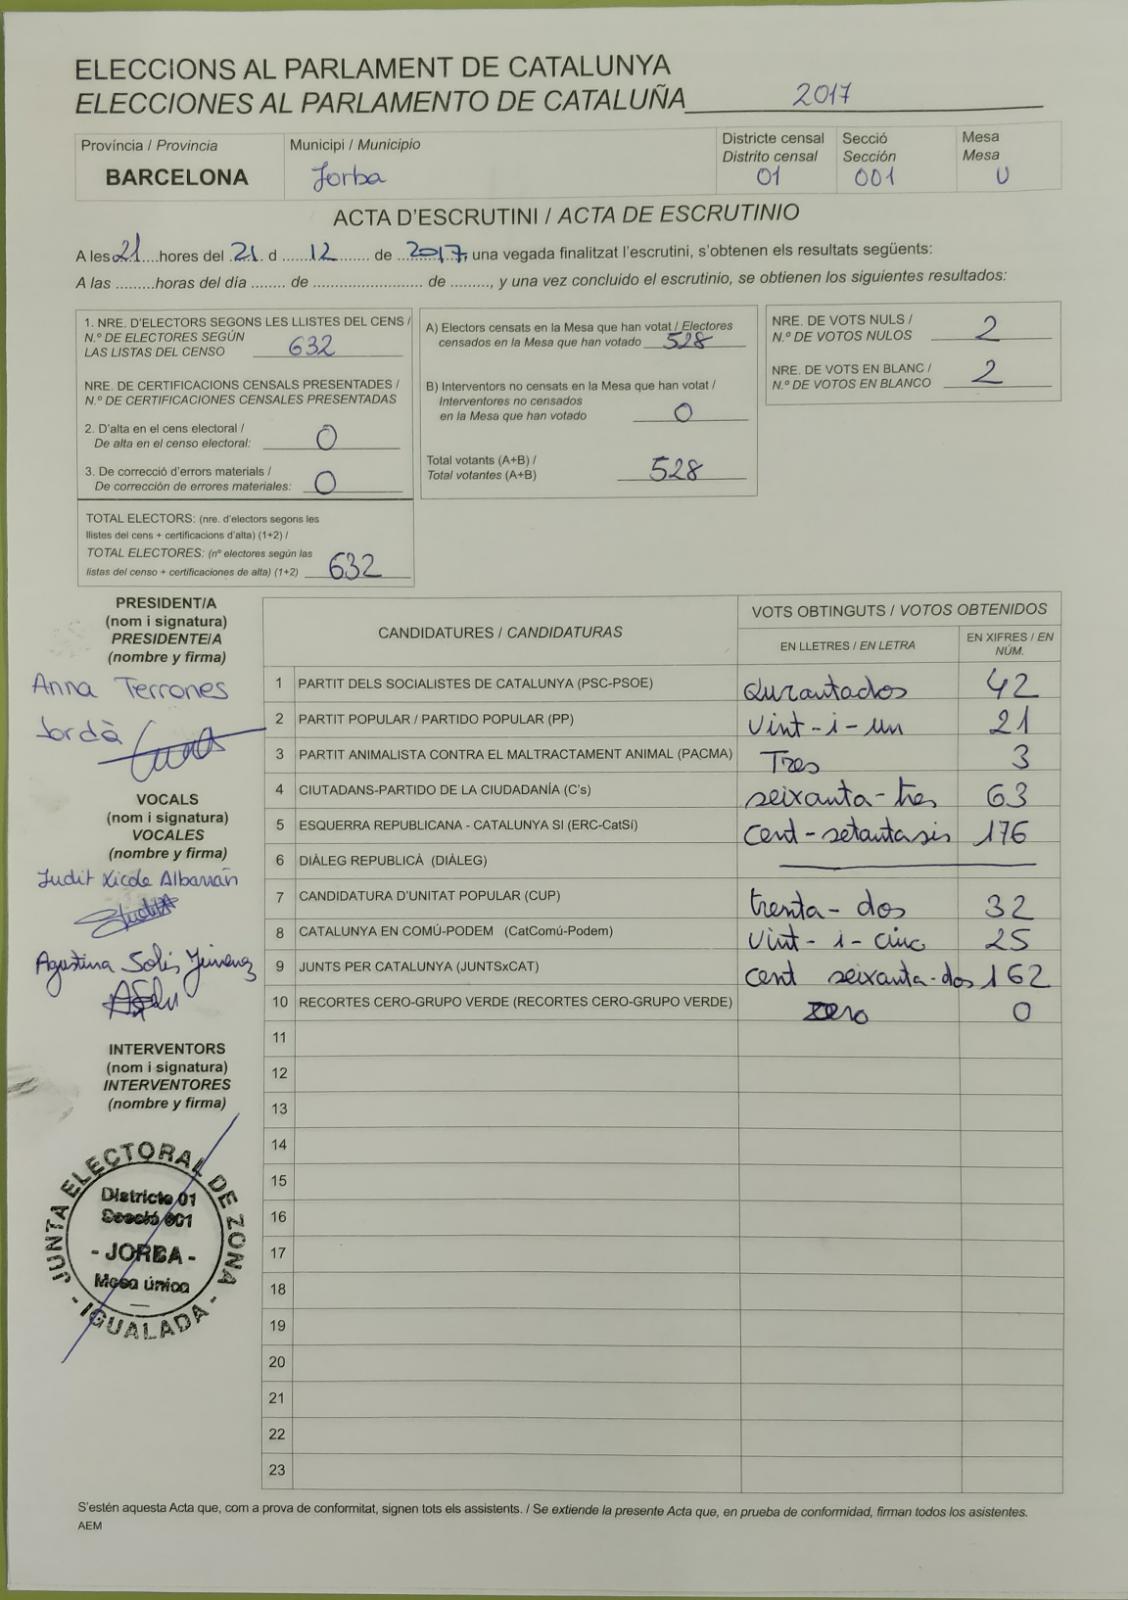 ELECCIONS AL PARLAMENT DE CATALUNYA
ELECCIONES AL PARLAMENTO DE CATALUÑA 2017
Província / Provincia
BARCELONA
Municipi / Municipio
Jorba
Districte censal
Distrito censal
01
Secció
Sección
001
Mesa
Mesa
U
ACTA D'ESCRUTINI / ACTA DE ESCRUTINIO
A les 21 hores del 21 d 12 de 2017, una vegada finalitzat l'escrutini, s'obtenen els resultats següents:
A las .........horas del día ........ de ......................... de ........., y una vez concluido el escrutinio, se obtienen los siguientes resultados:
1. NRE. D'ELECTORS SEGONS LES LLISTES DEL CENS /
N.º DE ELECTORES SEGÚN
LAS LISTAS DEL CENSO 632
NRE. DE CERTIFICACIONS CENSALS PRESENTADES /
N.º DE CERTIFICACIONES CENSALES PRESENTADAS
2. D'alta en el cens electoral /
De alta en el censo electoral: 0
3. De correcció d'errors materials /
De corrección de errores materiales: 0
TOTAL ELECTORS: (nre. d'electors segons les
llistes del cens + certificacions d'alta) (1+2) /
TOTAL ELECTORES: (nº electores según las
listas del censo + certificaciones de alta) (1+2) 632
A) Electors censats en la Mesa que han votat / Electores
censados en la Mesa que han votado 528
B) Interventors no censats en la Mesa que han votat /
Interventores no censados
en la Mesa que han votado 0
Total votants (A+B) /
Total votantes (A+B) 528
NRE. DE VOTS NULS /
N.º DE VOTOS NULOS 2
NRE. DE VOTS EN BLANC /
N.º DE VOTOS EN BLANCO 2
PRESIDENT/A
(nom i signatura)
PRESIDENTE/A
(nombre y firma)
Anna Terrones
Jordà
VOCALS
(nom i signatura)
VOCALES
(nombre y firma)
Judit Xicola Albarrán
Judit
Agustina Solis Jimenez
INTERVENTORS
(nom i signatura)
INTERVENTORES
(nombre y firma)
JUNTA ELECTORAL DE ZONA
Districte 01
Secció 001
- JORBA -
Mesa única
- IGUALADA -
CANDIDATURES / CANDIDATURAS
VOTS OBTINGUTS / VOTOS OBTENIDOS
EN LLETRES / EN LETRA
EN XIFRES / EN
NÚM.
1 PARTIT DELS SOCIALISTES DE CATALUNYA (PSC-PSOE) Qurantados 42
2 PARTIT POPULAR / PARTIDO POPULAR (PP) Vint-i-un 21
3 PARTIT ANIMALISTA CONTRA EL MALTRACTAMENT ANIMAL (PACMA) Tres 3
4 CIUTADANS-PARTIDO DE LA CIUDADANÍA (C's) seixanta-tres 63
5 ESQUERRA REPUBLICANA - CATALUNYA SI (ERC-CatSí) cent-setantasis 176
6 DIÀLEG REPUBLICÀ (DIÀLEG)
7 CANDIDATURA D'UNITAT POPULAR (CUP) trenta-dos 32
8 CATALUNYA EN COMÚ-PODEM (CatComú-Podem) Vint-i-cinc 25
9 JUNTS PER CATALUNYA (JUNTSxCAT) cent seixanta-dos 162
10 RECORTES CERO-GRUPO VERDE (RECORTES CERO-GRUPO VERDE) zero 0
11
12
13
14
15
16
17
18
19
20
21
22
23
S'estén aquesta Acta que, com a prova de conformitat, signen tots els assistents. / Se extiende la presente Acta que, en prueba de conformidad, firman todos los asistentes.
AEM